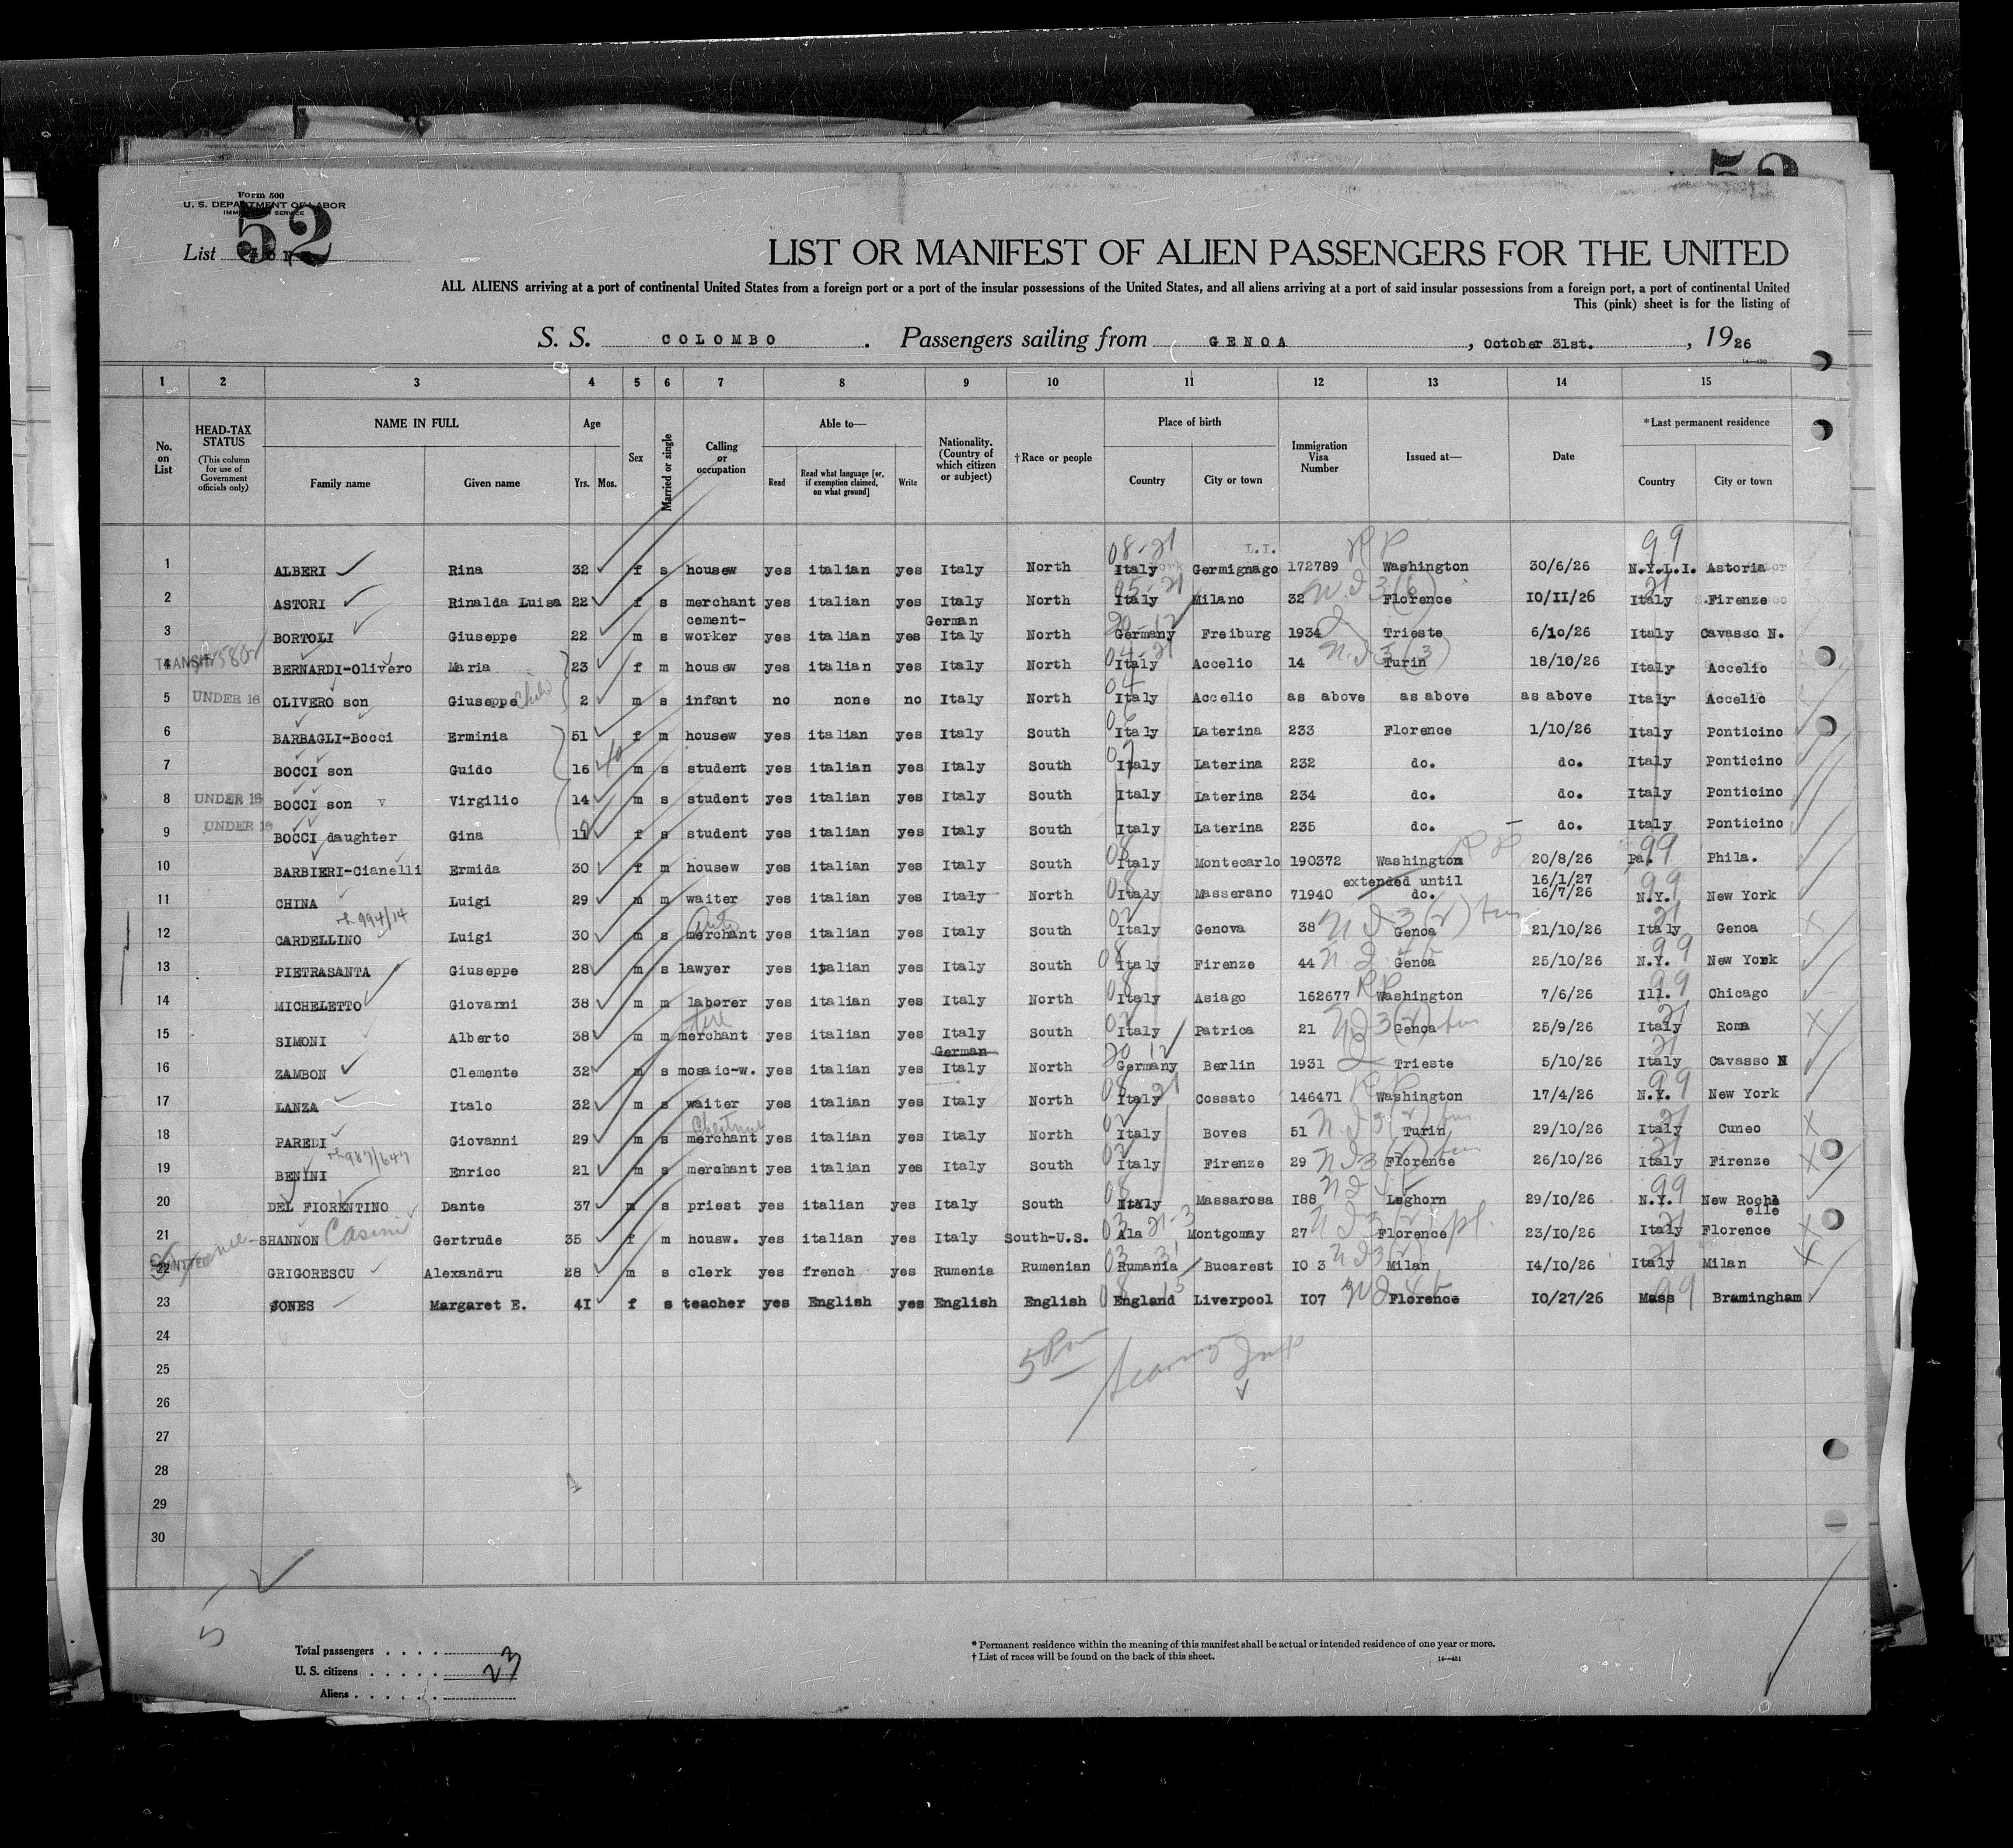 Form 500
U. S. DEPARTMENT OF LABOR
IMMIGRATION SERVICE
List 52
LIST OR MANIFEST OF ALIEN PASSENGERS FOR THE UNITED
ALL ALIENS arriving at a port of continental United States from a foreign port or a port of the insular possessions of the United States, and all aliens arriving at a port of said insular possessions from a foreign port, a port of continental United
This (pink) sheet is for the listing of
S. S. COLOMBO . Passengers sailing from GENOA , October 31st. , 1926
1 2 3 4 5 6 7 8 9 10 11 12 13 14 15
No. on List
HEAD-TAX STATUS (This column for use of Government officials only)
NAME IN FULL Family name Given name
Age Yrs. Mos.
Sex
Married or single
Calling or occupation
Able to— Read Read what language [or, if exemption claimed, on what ground] Write
Nationality. (Country of which citizen or subject)
† Race or people
Place of birth Country City or town
Immigration Visa Number
Issued at—
Date
* Last permanent residence Country City or town
1 ALBERI Rina 32 f s housew yes italian yes Italy North 08-21 Italy Germignago L.I. 172789 RP Washington 30/6/26 99 N.Y.L.I. Astoria
2 ASTORI Rinalda Luisa 22 f s merchant yes italian yes Italy North 05-21 Italy Milano 32 Florence 10/11/26 21 Italy Firenze
3 BORTOLI Giuseppe 22 m s cement-worker yes italian yes German Italy North Germany Freiburg 1934 Trieste 6/10/26 Italy Cavasso N.
4 TRANSIT BERNARDI-Olivero Maria 23 f m housew yes italian yes Italy North Italy Accelio 14 N.I 3(3) Turin 18/10/26 Italy Accelio
5 UNDER 16 OLIVERO son Giuseppe child 2 m s infant no none no Italy North 04 Italy Accelio as above as above as above Italy Accelio
6 BARBAGLI-Bocci Erminia 51 f m housew yes italian yes Italy South Italy Laterina 233 Florence 1/10/26 Italy Ponticino
7 BOCCI son Guido 16 m s student yes italian yes Italy South Italy Laterina 232 do. do. Italy Ponticino
8 UNDER 16 BOCCI son Virgilio 14 m s student yes italian yes Italy South Italy Laterina 234 do. do. Italy Ponticino
9 UNDER 16 BOCCI daughter Gina 11 f s student yes italian yes Italy South Italy Laterina 235 do. do. Italy Ponticino
10 BARBIERI-Cianelli Ermida 30 f m housew yes italian yes Italy South 08 Italy Montecarlo 190372 Washington RP 20/8/26 99 Pa. Phila.
extended until 16/1/27
11 CHINA Luigi 29 m m waiter yes italian yes Italy North 08 Italy Masserano 71940 do. 16/7/26 99 N.Y. New York
12 CARDELLINO 994/14 Luigi 30 m s auto merchant yes italian yes Italy South 02 Italy Genova 38 N I 3(2) Genoa 21/10/26 21 Italy Genoa
13 PIETRASANTA Giuseppe 28 m s lawyer yes italian yes Italy South 08 Italy Firenze 44 Genoa 25/10/26 99 N.Y. New York
14 MICHELETTO Giovanni 38 m m laborer yes italian yes Italy North 08 Italy Asiago 162677 RP Washington 7/6/26 99 Ill. Chicago
15 SIMONI Alberto 38 m m merchant yes italian yes Italy South 02 Italy Patrica 21 N I 3(2) Genoa 25/9/26 21 Italy Roma
16 ZAMBON Clemente 32 m s mosaic-w. yes italian yes German Italy North 20 12 Germany Berlin 1931 Trieste 5/10/26 21 Italy Cavasso N
17 LANZA Italo 32 m s waiter yes italian yes Italy North 08 21 Italy Cossato 146471 RP Washington 17/4/26 99 N.Y. New York
18 PAREDI Giovanni 29 m s Chestnut merchant yes italian yes Italy North 02 Italy Boves 51 N I 3(2) Turin 29/10/26 21 Italy Cuneo
19 BENINI 987/647 Enrico 21 m s merchant yes italian yes Italy South 02 Italy Firenze 29 N I 3(2) Florence 26/10/26 21 Italy Firenze
20 DEL FIORENTINO Dante 37 m s priest yes italian yes Italy South 08 Italy Massarosa 188 Leghorn 29/10/26 99 N.Y. New Rochelle
21 SHANNON Casini Gertrude 35 f m housw. yes italian yes Italy South-U.S. 03 21-3 Ala Montgomay 27 N I 3(2) Florence 23/10/26 21 Italy Florence
22 GRIGORESCU Alexandru 28 m s clerk yes french yes Rumenia Rumenian 03 31 Rumania Bucarest 10 3 N I 3(2) Milan 14/10/26 21 Italy Milan
23 JONES Margaret E. 41 f s teacher yes English yes English English 08 15 England Liverpool 107 Florence 10/27/26 99 Mass Bramingham
24
25
26
27
28
29
30
Total passengers . . . .
U. S. citizens . . . . . 23
Aliens . . . . . .
* Permanent residence within the meaning of this manifest shall be actual or intended residence of one year or more.
† List of races will be found on the back of this sheet.
14—431